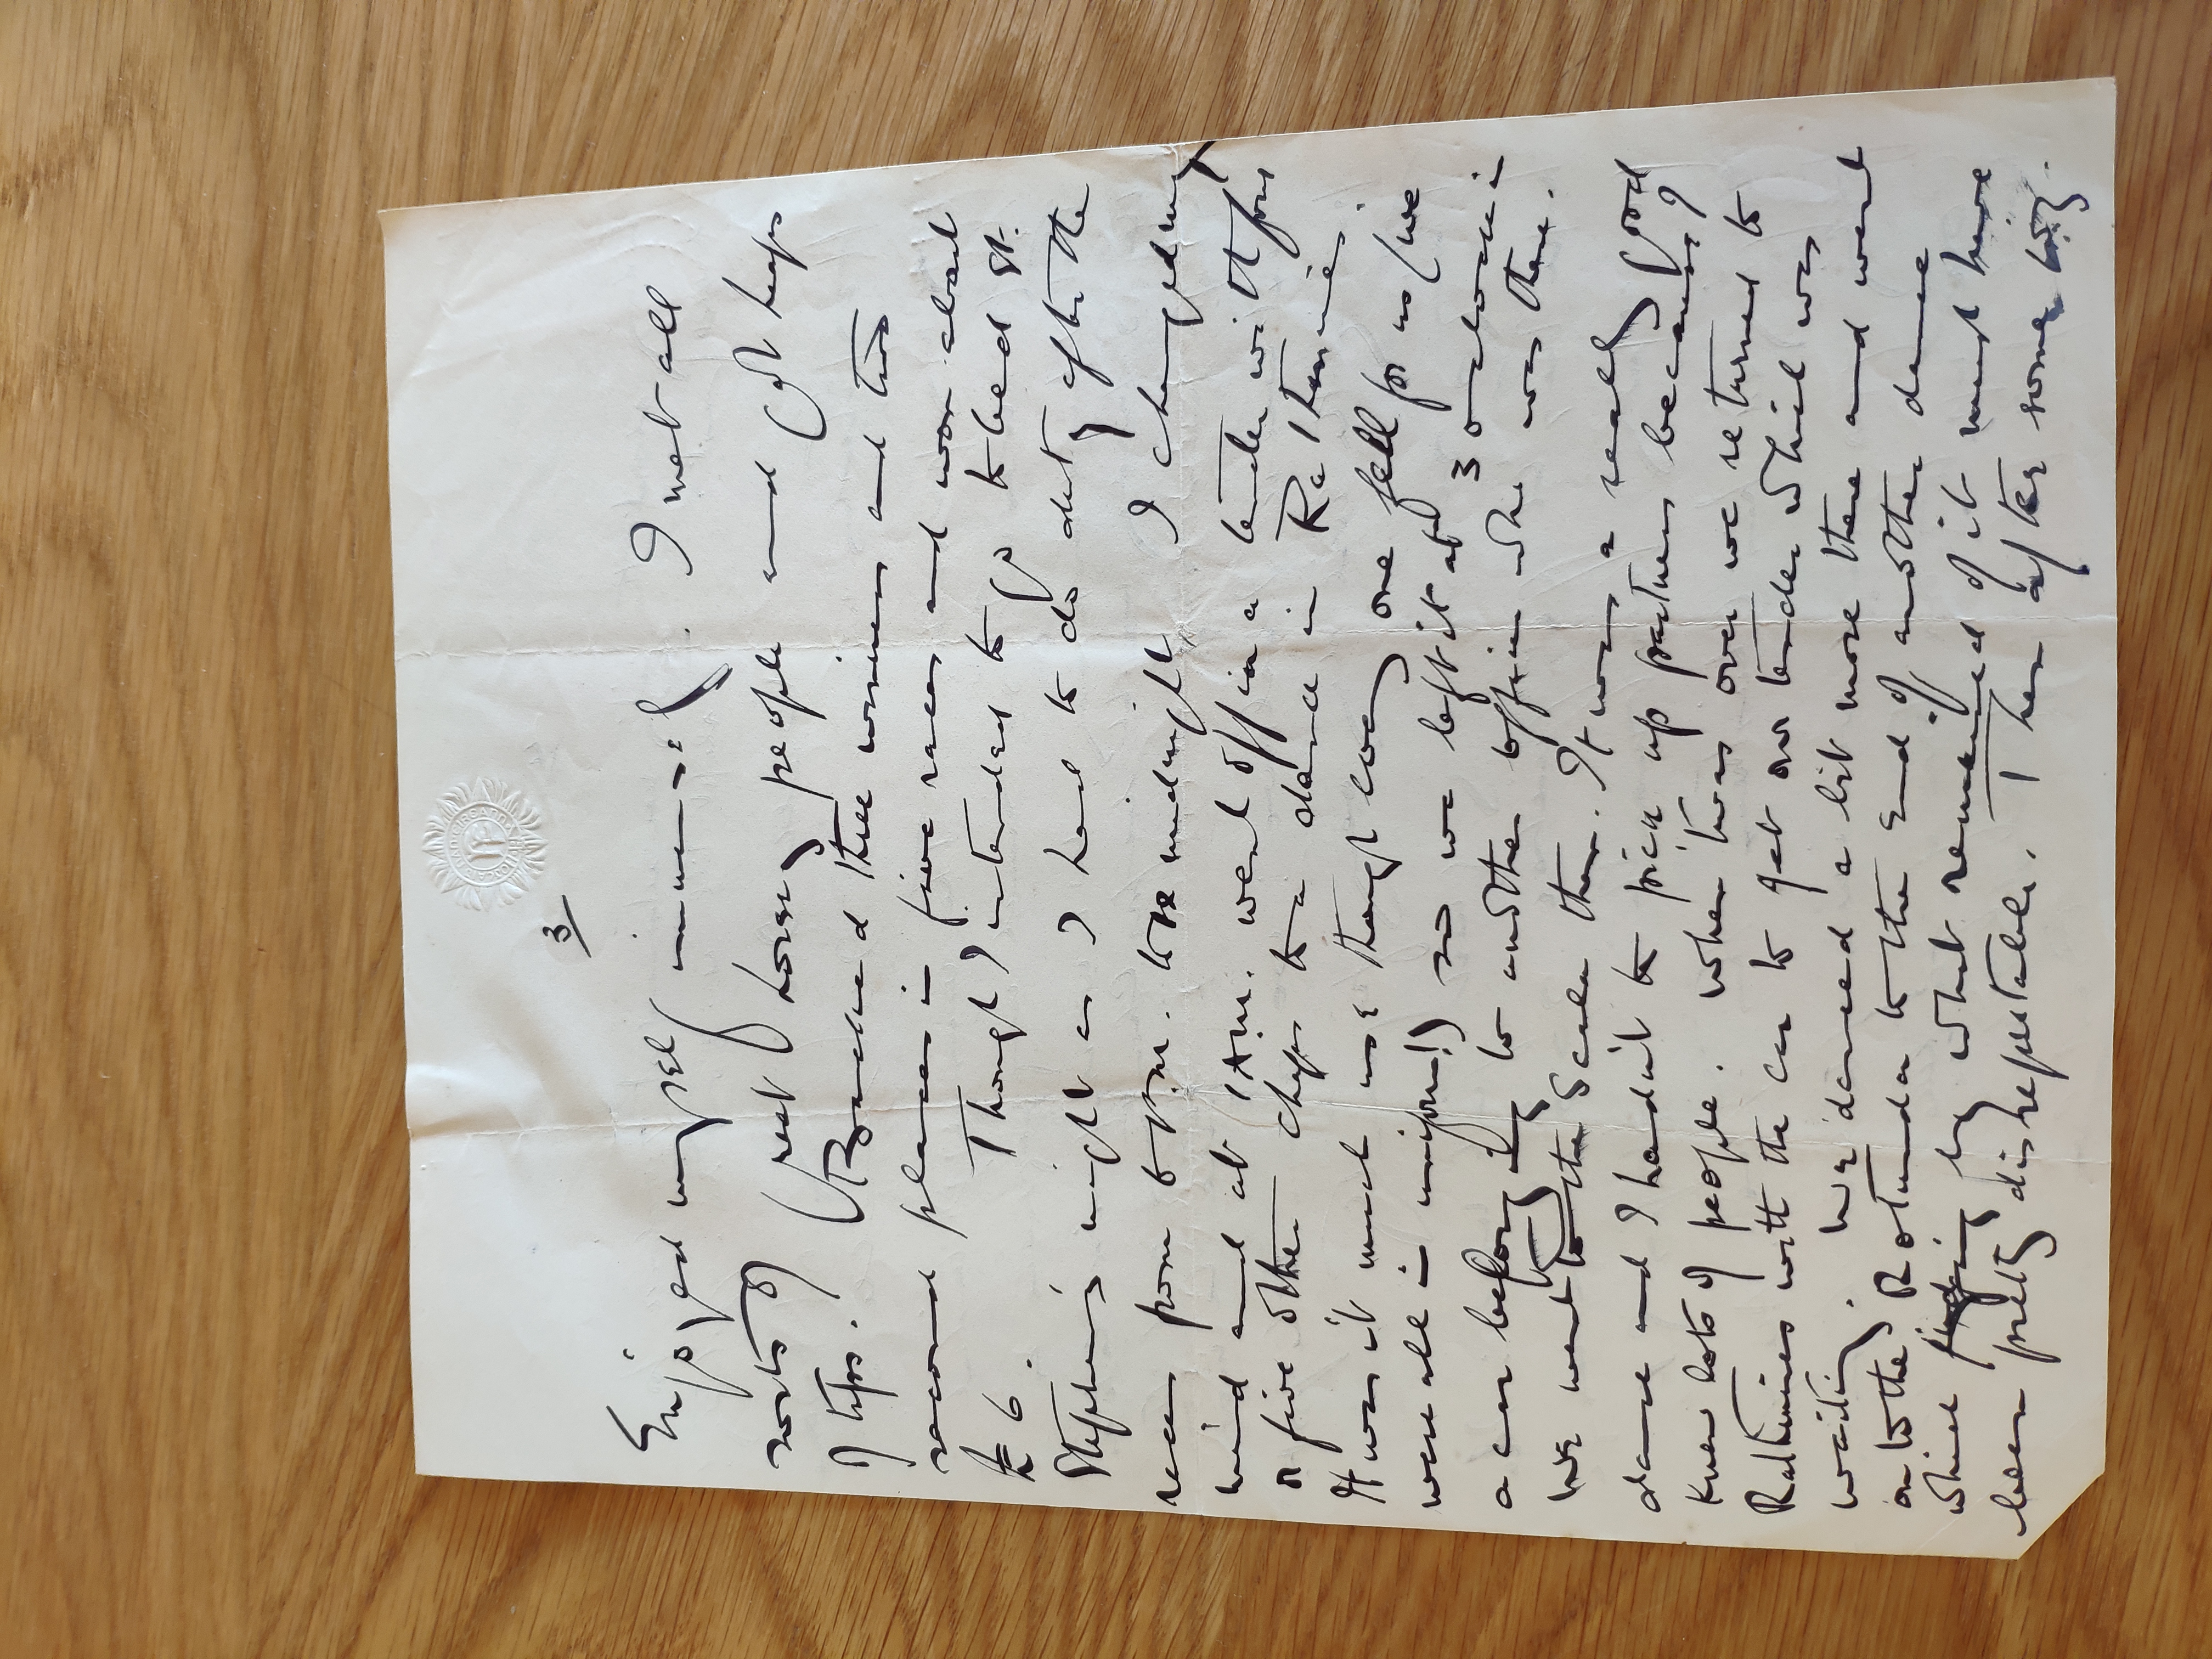 3/
Enjoyed myself immensely. I met all
sorts of great horsey people and got heaps
of tips. (Backed three winners and two
second places in five races and won about
£6.
Though I intended to go to bed St.
Stephen's night as I had to do duty after the
races from 6 p.m. to midnight I changed my
mind and at 1 A.M. went off in a tender with four
or five other chaps to a dance in Rathmines.
It was it much use though every one fell for us (we
were all in uniform!) so we left it abt 3 o'clock in
a car belonging to another officer who was there.
We went to the Scala then. It was a really good
dance and I hadn't to pick up partners because I
knew lots of people. When this was over we returned to
Rathmines with the car to get our tender which was
waiting. We danced a bit more there and went
on to the Rotunda to the end of another dance
which judging by what remained of it must have
been pretty disreputable. Then after some